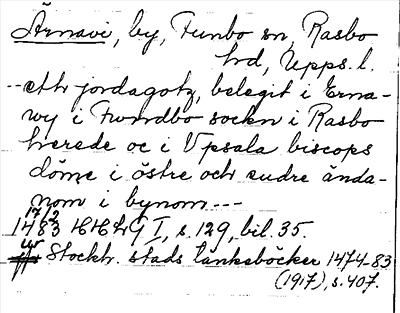 Ärnavi, by, Funbo sn, Rasbo
hd, Upps. l.
--- ett jordagotz, belegit i Erna-
wy i Fwndbo socken i Rasbo
herede oc i Vpsala biscops
döme i östre och eudre ända-
nom i bynom ---
17/2
1483 HHLG I, s. 129, bil. 35.
ur Stockh. stads tänkeböcker 1474-83
(1917), s. 407.